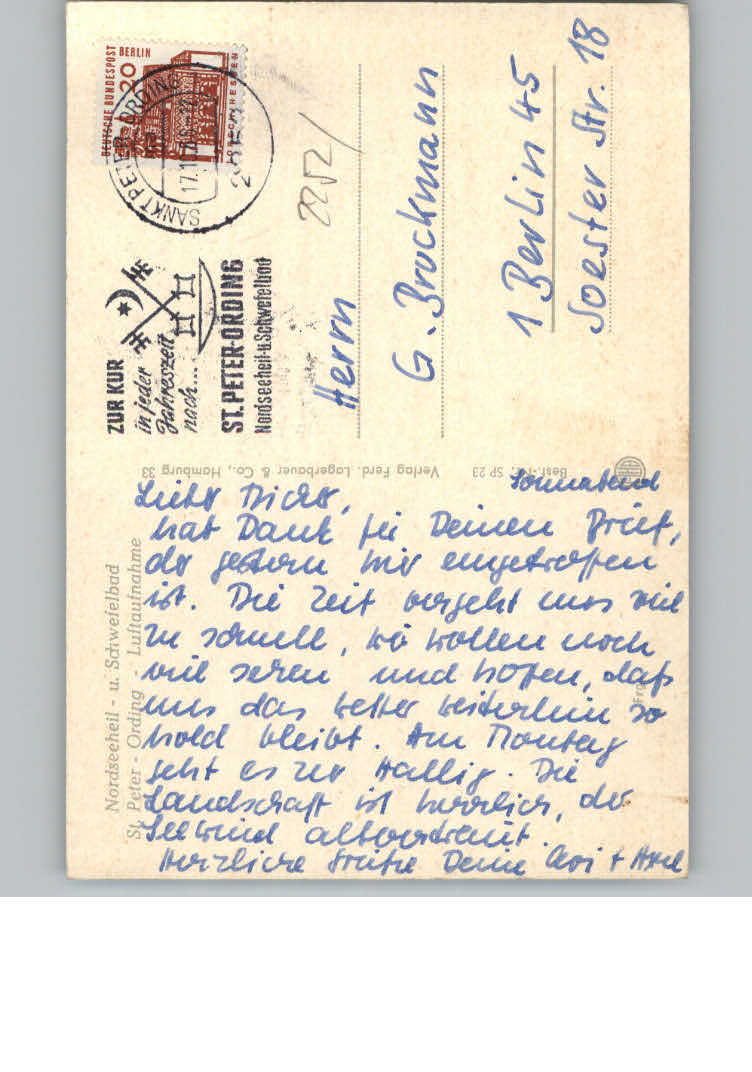 Nordseeheil - u. Schwefelbad
St. Peter - Ording - Luftaufnahme
Sonnabend
hat Dank für Deinen Brief,
der gestern hier eingetroffen
ist. Die Zeit vergeht uns viel
zu schnell, wir wollen noch
viel sehen und hoffen, daß
uns das Wetter weiterhin so
hold bleibt. Am Montag
geht es zur Hallig. Die
Landschaft ist herrlich, der
Seewind altvertraut.
Herzliche Grüße Deine + Axel
Best.-Nr. SP 23 Verlag Ferd. Lagerbauer & Co., Hamburg 33
ZUR KUR
in jeder
Jahreszeit
nach...
ST. PETER-ORDING
Nordseeheil-u.Schwefelbad
SANKT PETER-ORDING
17.10.70
DEUTSCHE BUNDESPOST BERLIN
20
LORSCH/HESSEN
2252/
Herrn
G. Bruckmann
1 Berlin 45
Soester Str. 18